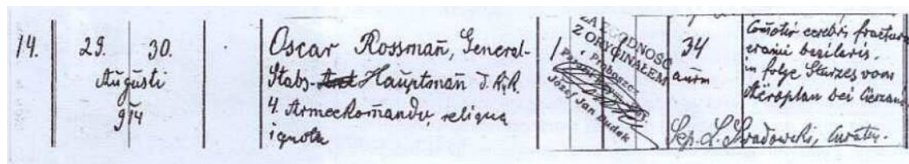 14.
29. 30.
Augusti
914
Oscar Rossmañ, General-
Stabs- Hauptmañ
4. Armeekom̃ando, reliqua
ignota
1
ZA ZGODNOŚĆ
Z ORYGINAŁEM
Proboszcz
Józef Jan Dudek
34
añrm
Com̃otio cerebri fractura
cranii basilaris,
in folge Sturzes vom
Aëroplan bei Cieszanów
Sep.